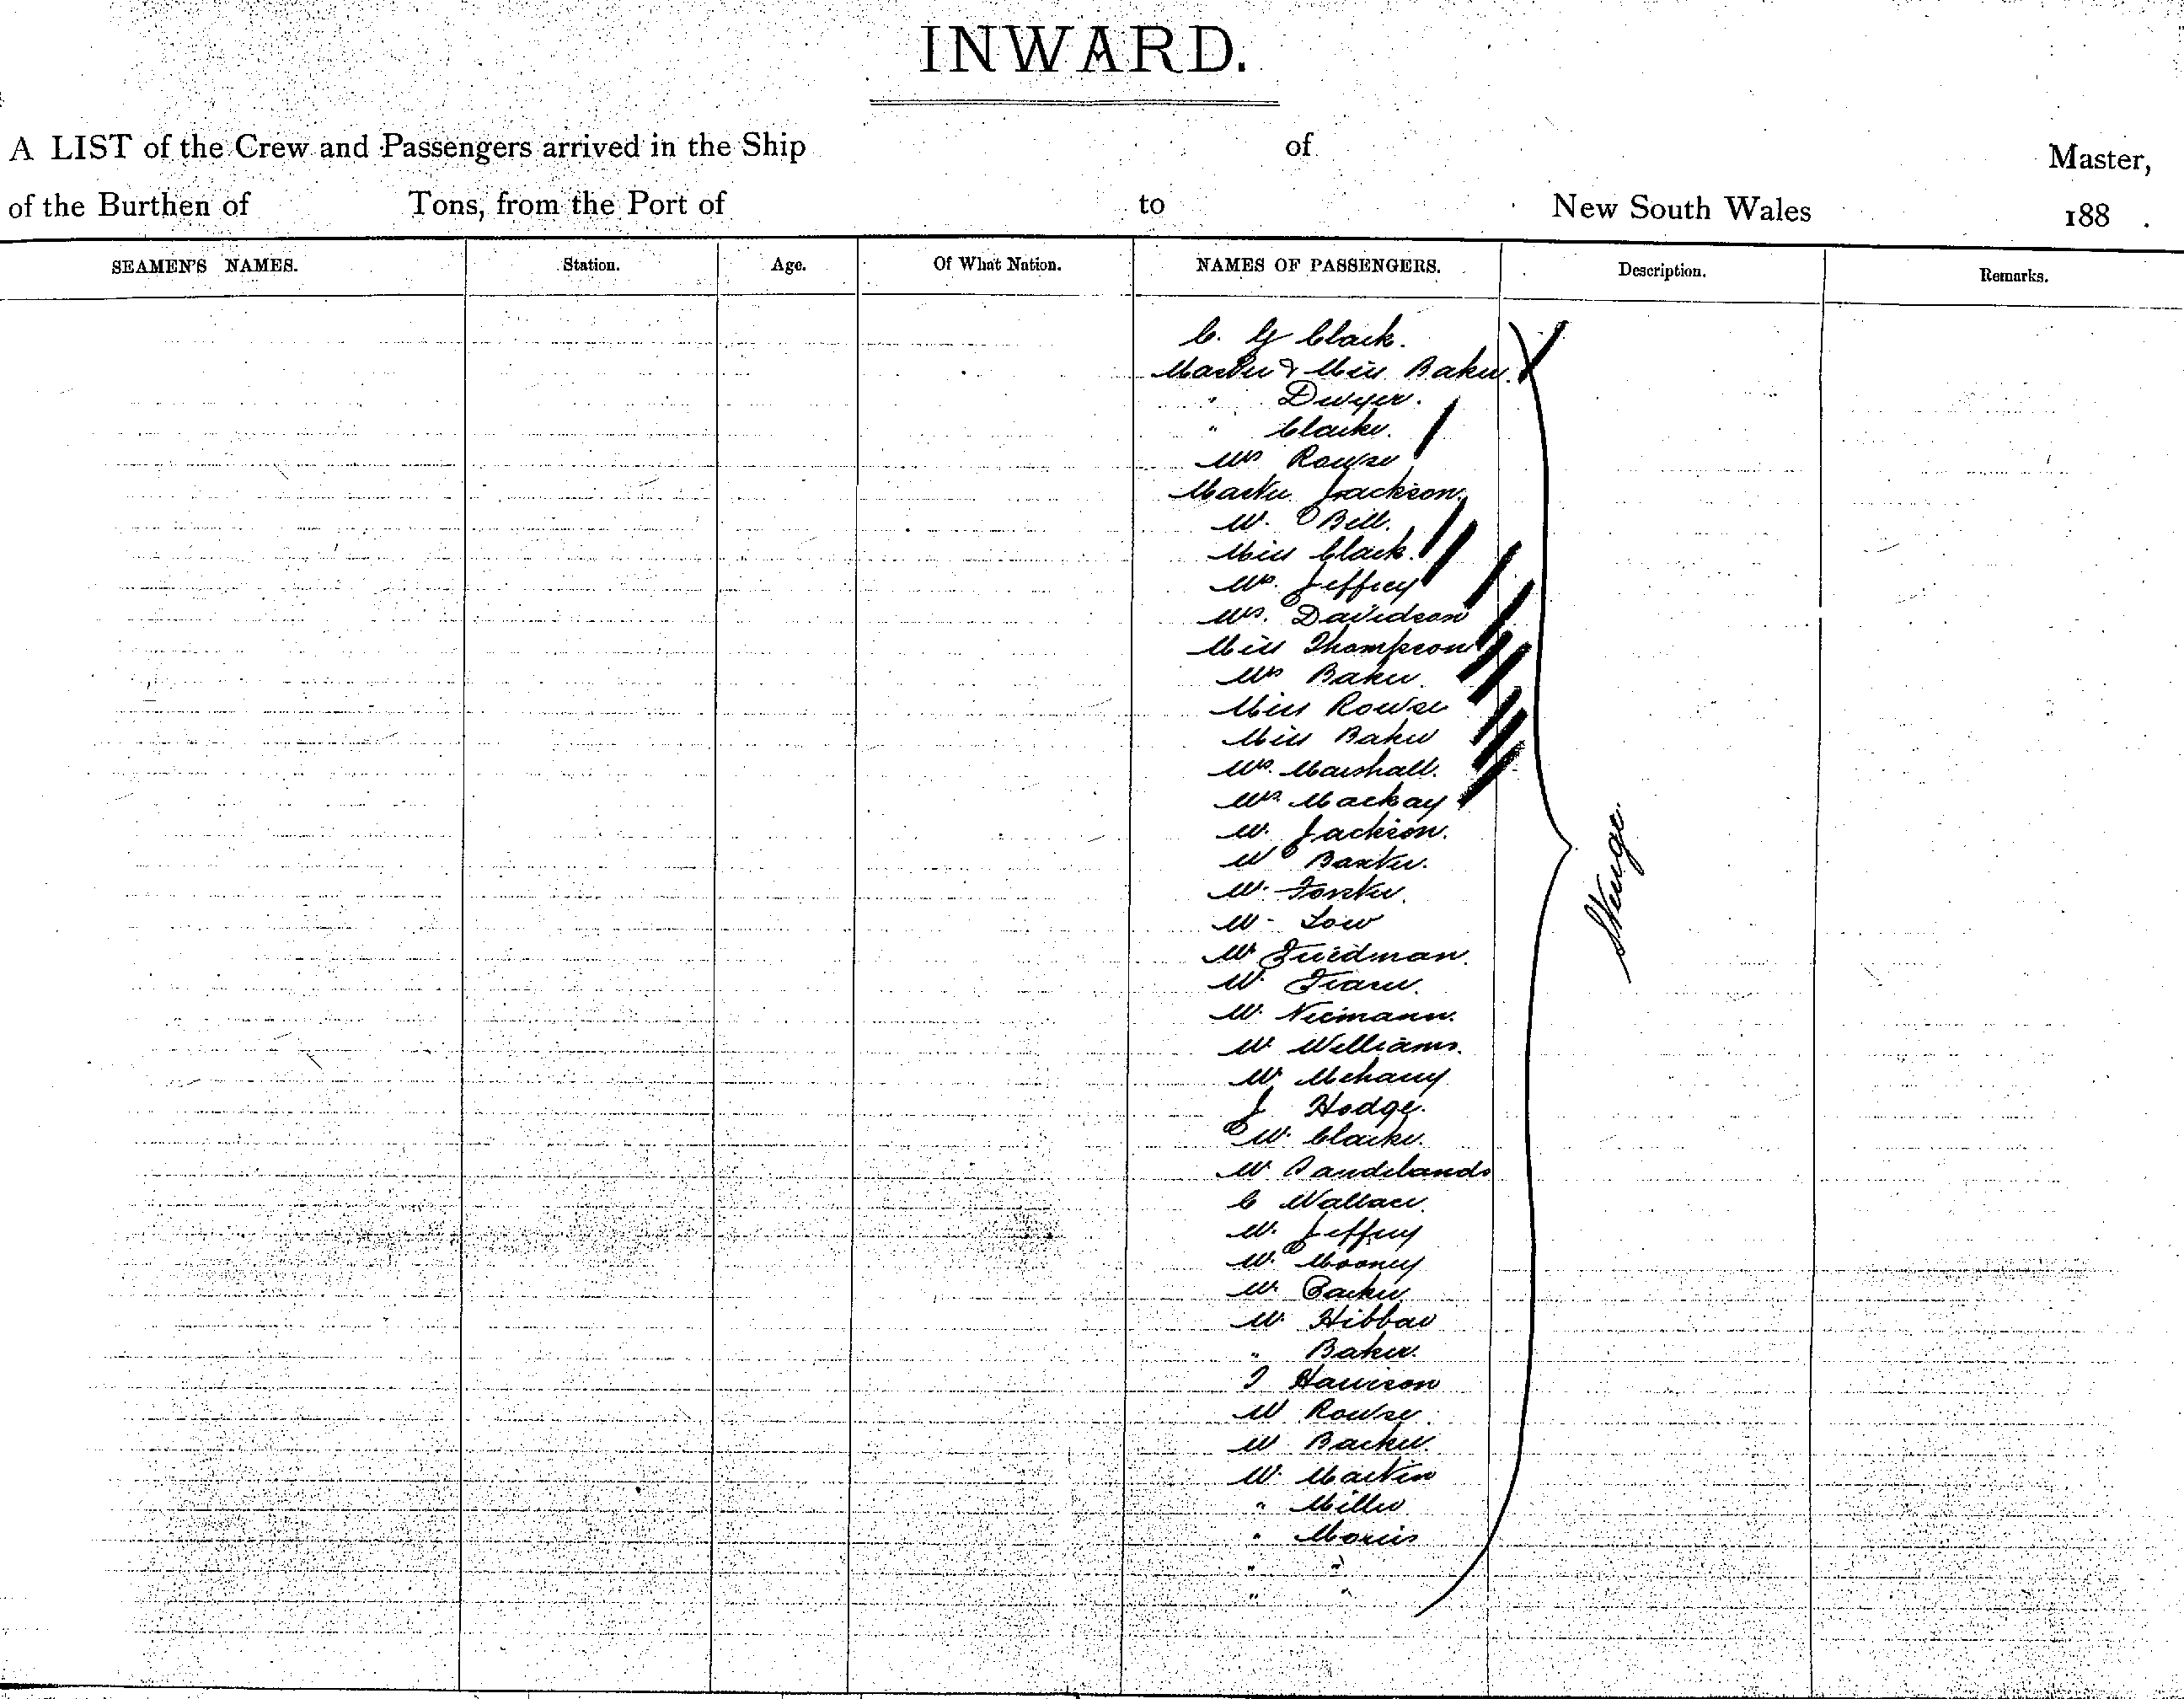 INWARD.
A LIST of the Crew and Passengers arrived in the Ship of Master,
of the Burthen of Tons, from the Port of to New South Wales 188 .
SEAMEN'S NAMES. Station. Age. Of What Nation. NAMES OF PASSENGERS. Description. Remarks.
C. G Clark.
Master & Miss Baker.
" Dwyer.
" Clarke.
Mrs Rowse
Master Jackson.
M. Bell.
Miss Clark.
Mrs. Jeffrey
Mrs. Davidson
Miss Thompson
Mrs Baker.
Miss Rowse
Miss Baker
Mrs. Marshall.
Mrs. Mackay
M. Jackson.
M Baxter.
M. Forster.
M. Low
M. Friedman.
M.
M. Niemann.
M Williams.
M.
J Hodge.
M. Clarke.
M Sandilands
C Wallace.
M. Jeffrey
M. Mooney
M. Parker
M.
" Baker.
J Harrison
M Rowse.
M Barker.
M. Martin
" Miller
" Morris
" "
" "
Sterage.